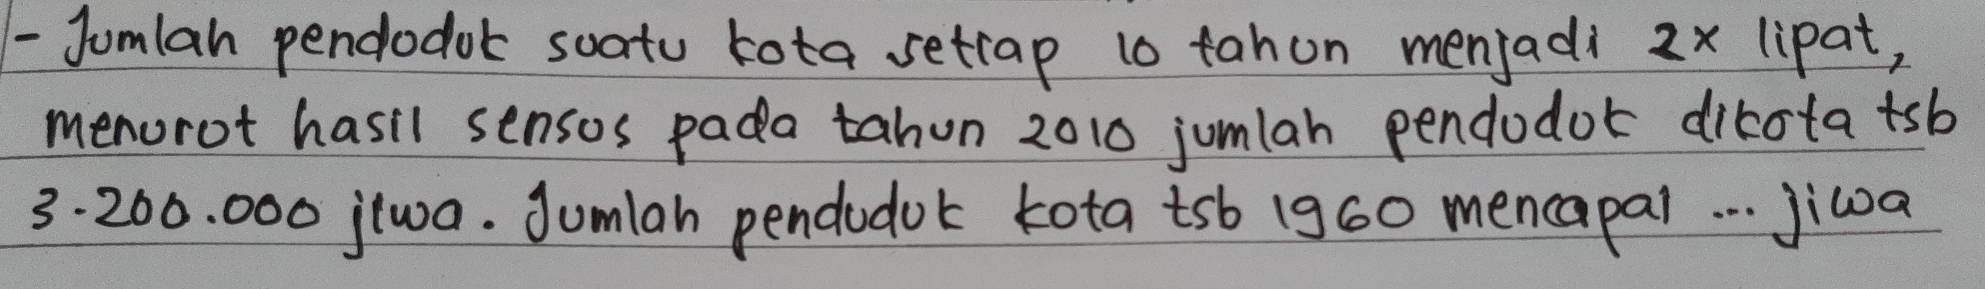 - Jumlah penduduk suatu kota setiap 10 tahun menjadi 2x lipat,
menurut hasil sensus pada tahun 2010 jumlah penduduk dikota tsb
3.200.000 jiwa. Jumlah penduduk kota tsb 1960 mencapai ... jiwa